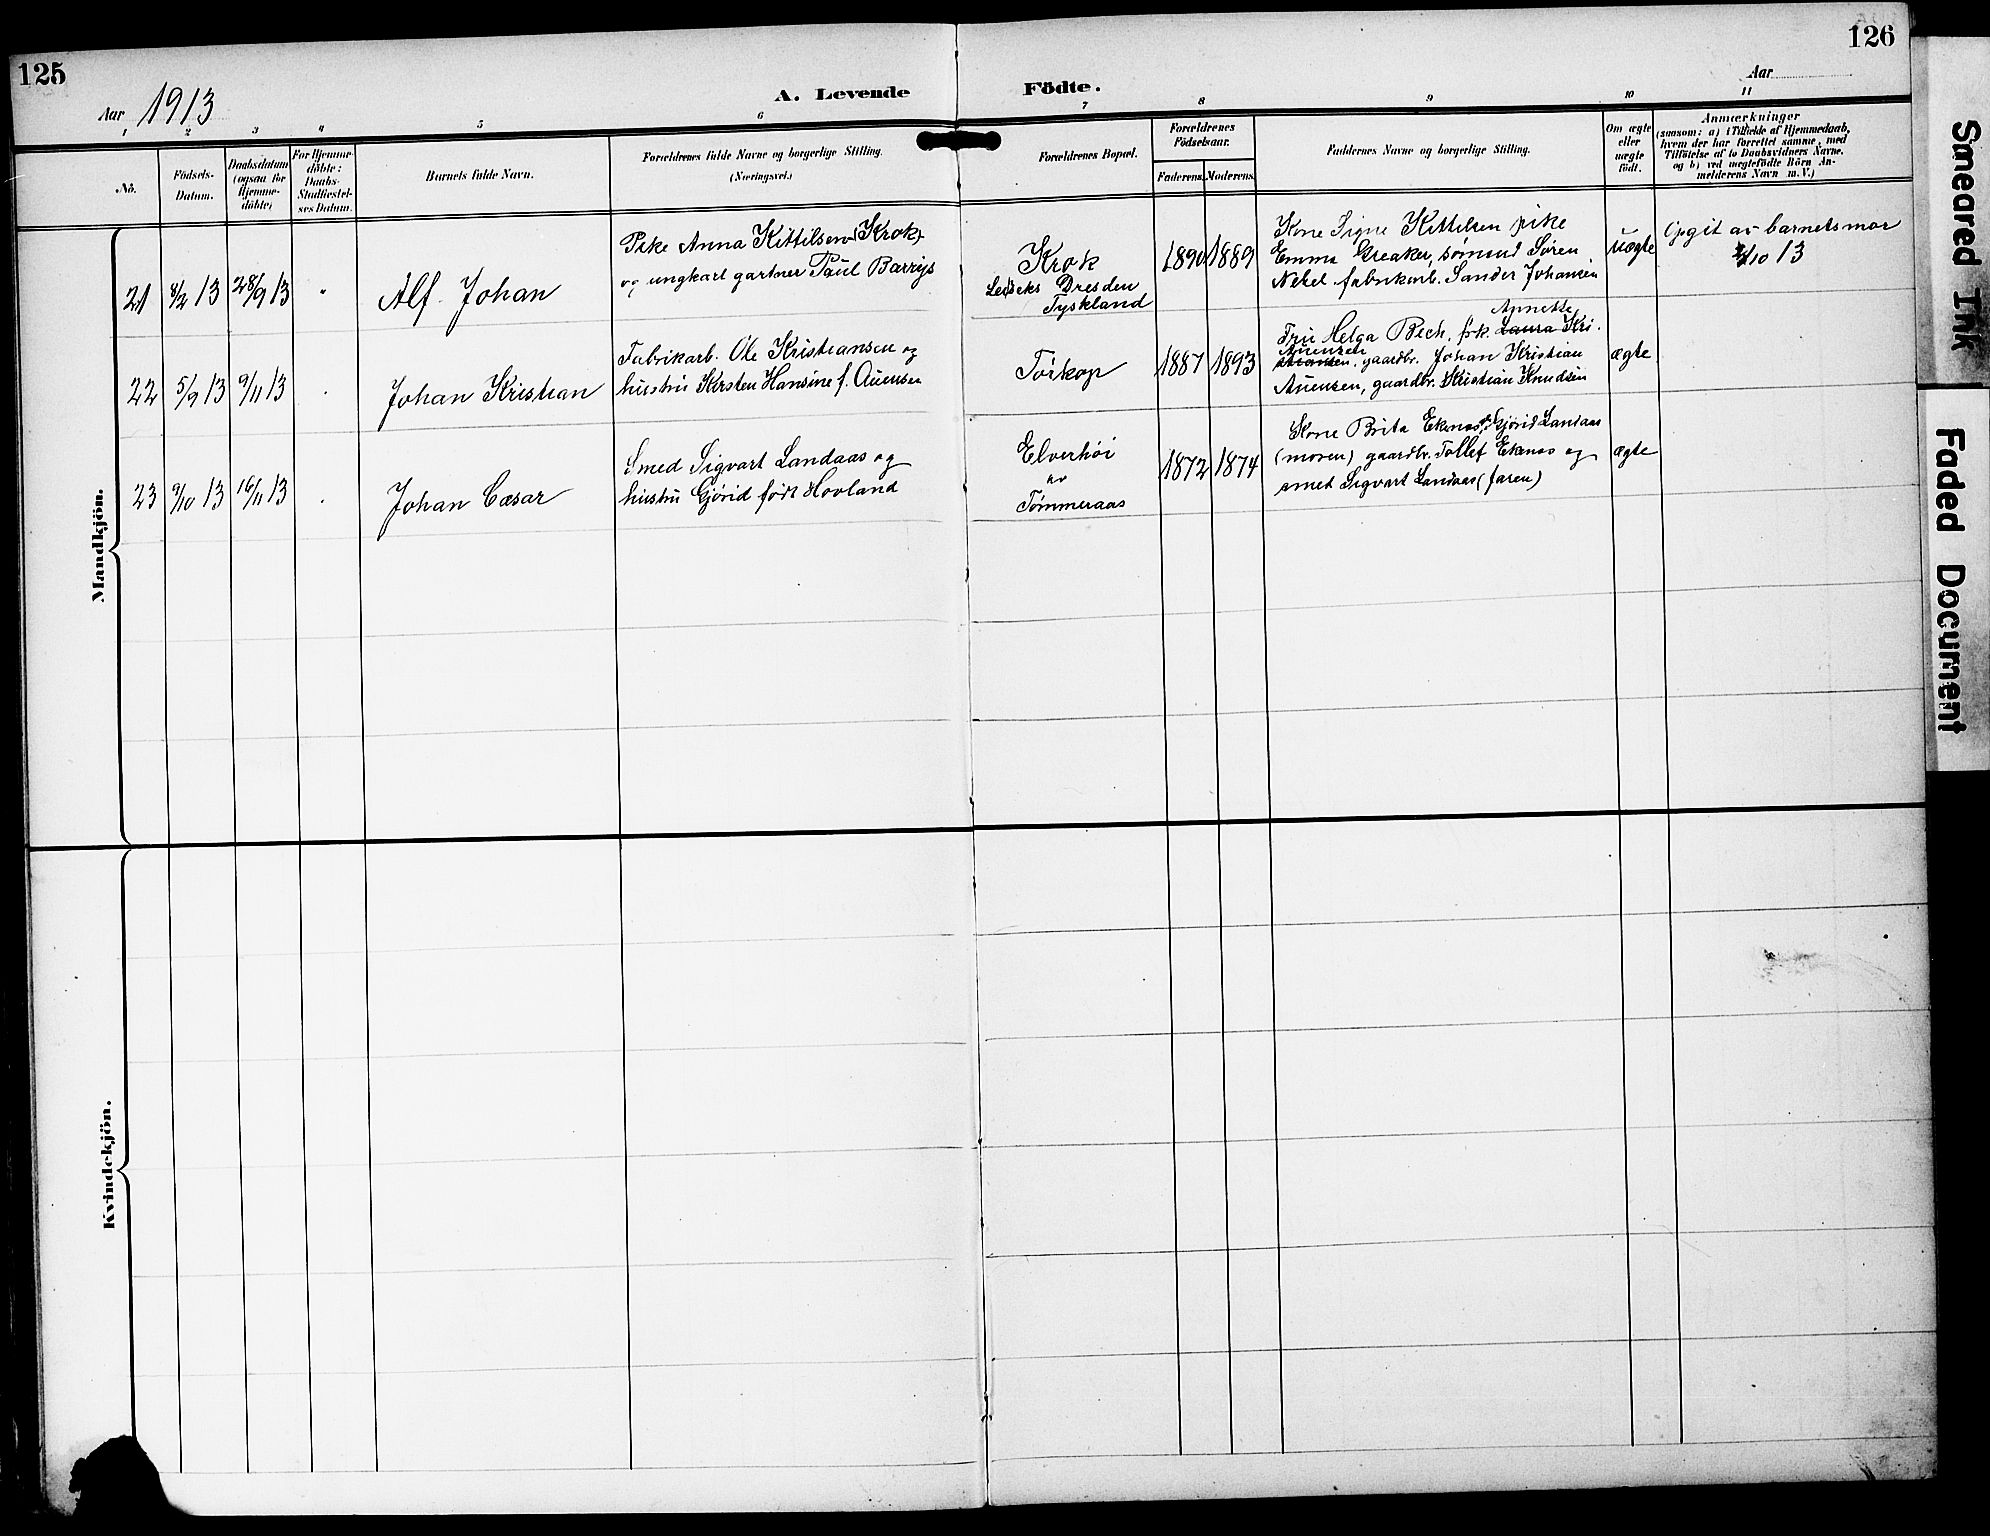 125
126
Aar 1913
A. Levende Födte.
Aar
1
2
3
4
5
6
7
8
9
10
11
No.
Födsels-
Datum.
Daabsdatum
(ogsaa for
Hjemme-
döbte)
For Hjemme-
döbte:
Daabs-
Stadfæstel-
ses Datum.
Barnets fulde Navn.
Forældrenes fulde Navne og borgerlige Stilling.
(Næringsvei.)
Forældrenes Bopæl.
Forældrenes
Födselsaar.
Faderens.
Moderens.
Faddernes Navne og borgerlige Stilling.
Om ægte
eller
uægte
födt.
Anmærkninger
(saasom: a) i Tilfælde af Hjemmedaab,
hvem der har forrettet samme, med
Tilföielse af to Daabsvidners Navne.
og b) ved uægtefödte Börn An-
melderens Navn m. V.)
Mandkjön.
21
8/2 13
28/9 13
"
Alf Johan
Pike Anna Kittilsen (Krok)
og ungkarl gartner Paul Barrys
Krok
Dresden
Tyskland
1890
1889
Kone Signe Kittilsen pike
Emma Greaker, sømand Søren
Nebel fabrikarb. Sander Johansen
uægte
Opgit av barnets mor
/10 13
22
5/9 13
9/11 13
Johan Kristian
Fabrikarb. Ole Kristiansen og
hustru Kirsten Hansine f. Auensen
Torkop
1887
1893
Annette
Fru Helga Bech, frk. Laura Kri.
Auensen
stiansen, gaardbr. Johan Kristian
Auensen, gaardbr. Kristian Knudsen
ægte
23
9/10 13
16/11 13
Johan Cæsar
Smed Sigvart Landaas og
hustru Gjórid født Hovland
Elverhöi
av
Tømmeraas
1872
1874
Kone Brita Ekenæs, Gjórid Landaas
(moren) gaardbr. Tollef Ekenæs og
smed Sigvart Landaas (faren)
ægte
Kvindekjön.
Smeared Ink
Faded Document